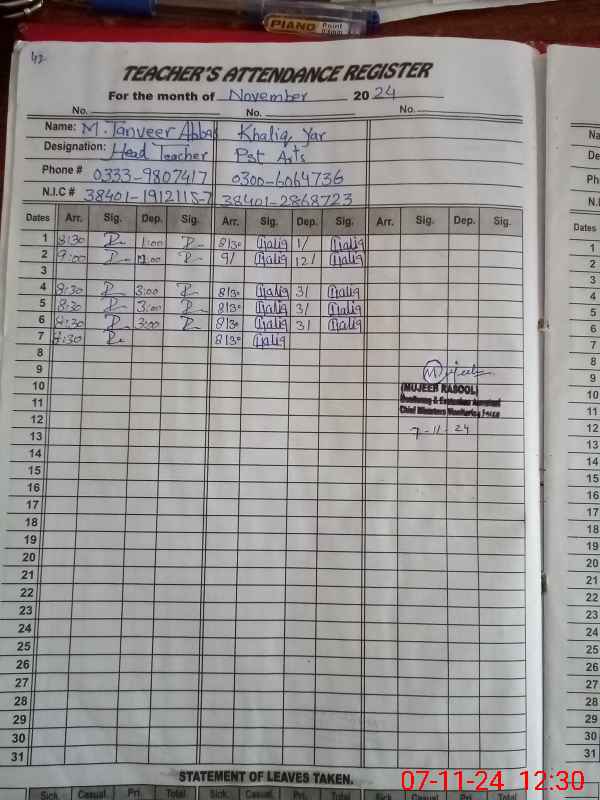 PIANO Point
42
TEACHER'S ATTENDANCE REGISTER
For the month of November 2024
No. No. No.
Name: M. Tanveer Abbas Khaliq Yar
Designation: Head Teacher Pst Arts
Phone # 0333-9807417 0300-6064736
N.I.C # 38401-1912115-7 38401-2868723
Dates Arr. Sig. Dep. Sig. Arr. Sig. Dep. Sig. Arr. Sig. Dep. Sig.
1 8:30 1:00 8/30 Khaliq 1/ Khaliq
2 9:00 12:00 9/ Khaliq 12/ Khaliq
3
4 8:30 3:00 8/30 Khaliq 3/ Khaliq
5 8:30 3:00 8/30 Khaliq 3/ Khaliq
6 8:30 3:00 8/30 Khaliq 3/ Khaliq
7 8:30 8/30 Khaliq
8
9
10
11
12
13
14
15
16
17
18
19
20
21
22
23
24
25
26
27
28
29
30
31
Mujeeb
(MUJEEB RASOOL)
Monitoring & Evaluation Assistant
Chief Ministers Monitoring Force
7-11-24
STATEMENT OF LEAVES TAKEN.
Sick Casual Pri. Total Sick. Casual Pri. Total Sick. Casual Pri. Total
Na
De
Pho
N.I.
Dates
1
2
3
4
5
6
7
8
9
10
11
12
13
14
15
16
17
18
19
20
21
22
23
24
25
26
27
28
29
30
31
07-11-24 12:30